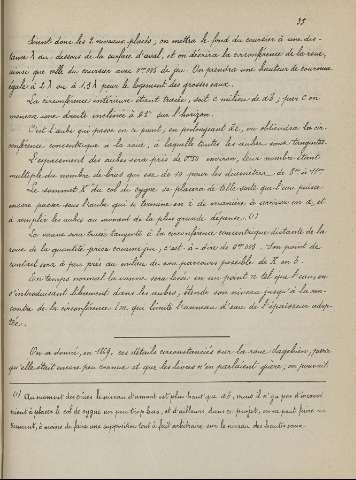 35
Soient donc les 2 niveaux placés; on mettra le fond du coursier à une dis-
tance λ au-dessous de la surface d'aval, et on décrira la circonférence de la roue,
ainsi que celle du coursier avec 0m005 de jeu. On prendra une hauteur de couronne
égale à 2 λ ou à 1.3 λ pour le logement des grosses eaux.
La circonférence intérieure étant tracée, soit C milieu de db; par C on
mènera une droite inclinée à sur l'horizon.
C'est l'aube qui passe en ce point, en prolongeant on obtiendra la cir-
conférence concentrique à la roue, à laquelle toutes les aubes sont tangentes.
L'espacement des aubes sera près de environ, leur nombre étant
multiple du nombre de bras que est de pour les diamètres de à
Le sommet K du col de cygne se placera de telle sorte que l'eau puisse
encore passer sous l'aube qui se termine en de manière à arriver en et
à remplir les aubes au moment de la plus grande dépense. (1)
La vanne sera tracée tangente à la circonférence concentrique distante de la
roue de la quantité prise comme jeu, c'est-à-dire de 0m005. Son point de
contact sera à peu près au milieu de son parcours possible de K en b.
En temps normal la vanne sera levée en un point tel que l'eau, en
s'introduisant librement dans les aubes, étende son niveau jusqu'à la ren-
contre de la circonférence qui limite l'anneau d'eau de l'épaisseur adop-
tée.
On a donné, en 1869, ces détails circonstanciés sur la roue Sagebien, parce
qu'elle était encore peu connue et que les livres n'en parlaient guère; on pouvait
(1) Au moment des crues le niveau d'amont est plus haut que mais il n'y a pas d'inconvé-
nient à placer le col de cygne un peu trop bas, et d'ailleurs dans ce projet, on ne peut faire au-
trement, à moins de faire une supposition tout à fait arbitraire sur le niveau des hautes eaux.